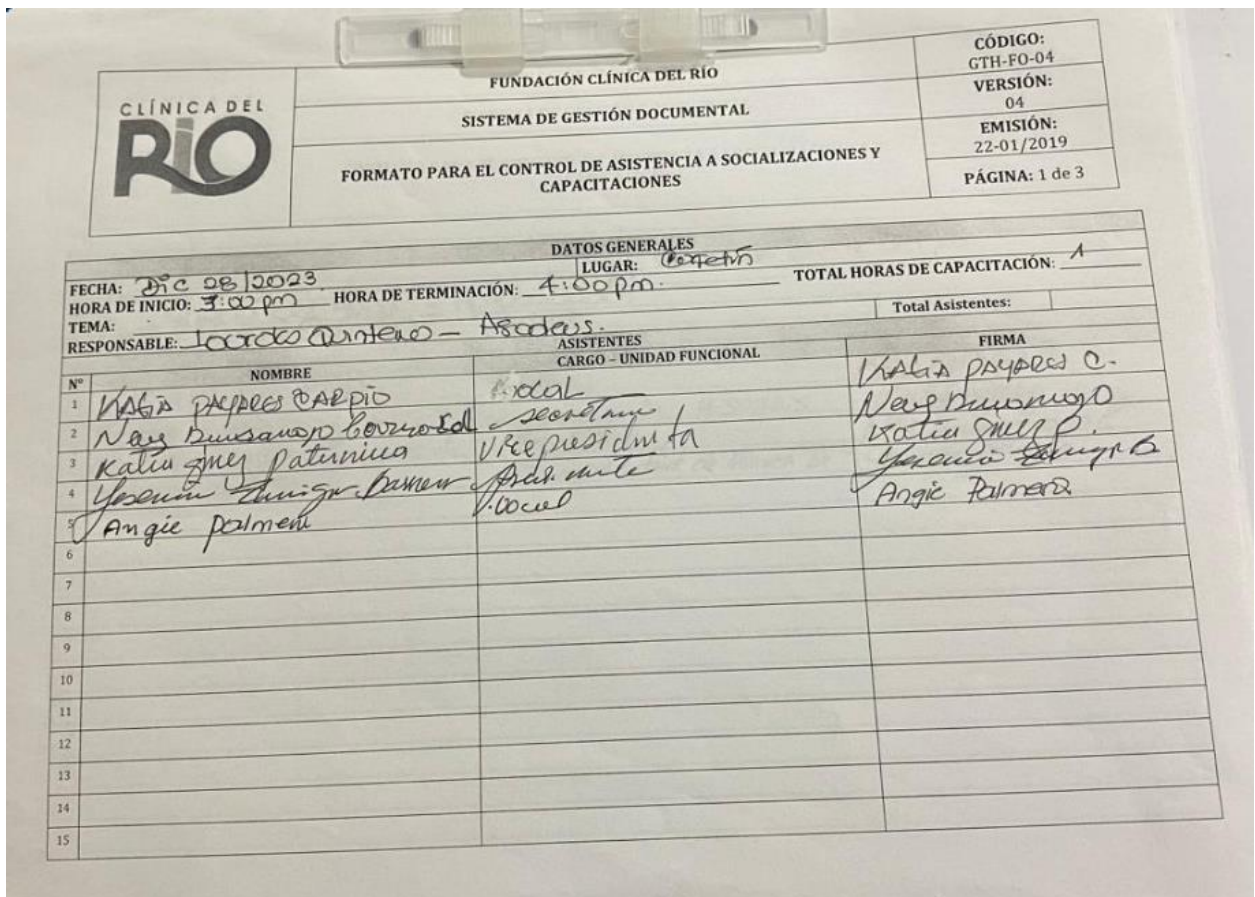 CLÍNICA DEL
RÍO
FUNDACIÓN CLÍNICA DEL RÍO
SISTEMA DE GESTIÓN DOCUMENTAL
FORMATO PARA EL CONTROL DE ASISTENCIA A SOCIALIZACIONES Y
CAPACITACIONES
CÓDIGO:
GTH-FO-04
VERSIÓN:
04
EMISIÓN:
22-01/2019
PÁGINA: 1 de 3
DATOS GENERALES
FECHA: Dic 28/2023 LUGAR:
HORA DE INICIO: 3:00 pm HORA DE TERMINACIÓN: 4:00 pm. TOTAL HORAS DE CAPACITACIÓN: 1
TEMA: Total Asistentes:
RESPONSABLE: Lourdes Quintero - Asodeus.
ASISTENTES
Nº NOMBRE CARGO – UNIDAD FUNCIONAL FIRMA
1 KATIA PAYARES CARPIO KATIA PAYARES C.
2 Secretaria
3 Katia Paternina Vicepresidenta Katia
4 Yesenia Zuniga Yesenia Zuniga B
5 Angie Palmera Angie Palmera
6
7
8
9
10
11
12
13
14
15